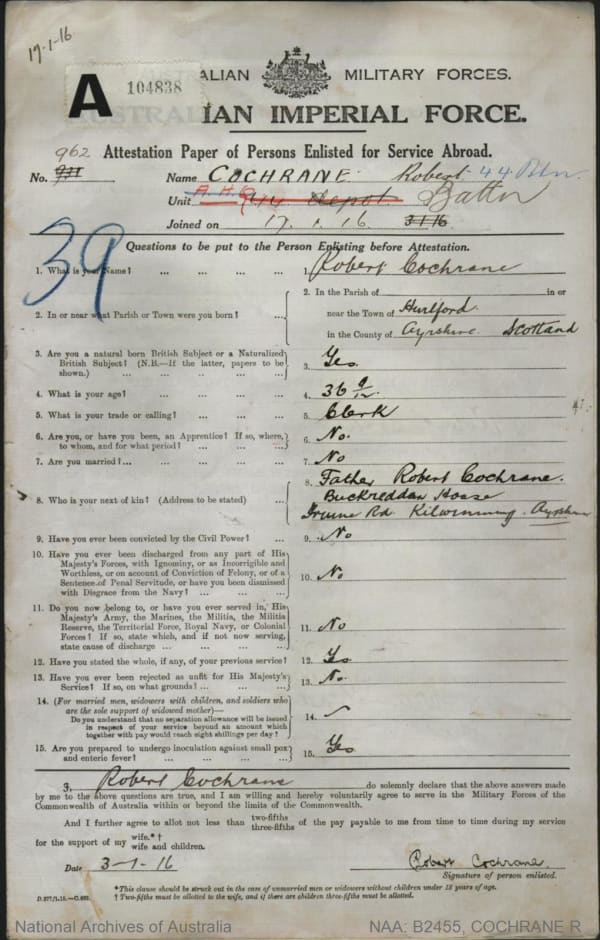 17-1-16
A 104838
ALIAN MILITARY FORCES.
IAN IMPERIAL FORCE.
Attestation Paper of Persons Enlisted for Service Abroad.
No. 962 Name COCHRANE Robert 44 Btn.
Unit A.H.Q. Depot Battn
Joined on 17.1.16 3.1.16
39
Questions to be put to the Person Enlisting before Attestation.
1. What is your Name? ... ... ... ... 1. Robert Cochrane
2. In or near what Parish or Town were you born? ... 2. In the Parish of in or
near the Town of Hurlford
in the County of Ayrshire Scotland
3. Are you a natural born British Subject or a Naturalized
British Subject? (N.B.—If the latter, papers to be
shown.) ... ... ... ... ... 3. Yes
4. What is your age? ... ... ... ... 4. 36 9/12
5. What is your trade or calling? ... ... ... 5. Clerk
6. Are you, or have you been, an Apprentice? If so, where,
to whom, and for what period? ... ... ... 6. No.
7. Are you married?... ... ... ... ... 7. No
8. Who is your next of kin? (Address to be stated) ... 8. Father Robert Cochrane.
Buckreddan House
Irvine Rd Kilwinning. Ayrshire
9. Have you ever been convicted by the Civil Power? ... 9. No
10. Have you ever been discharged from any part of His
Majesty's Forces, with Ignominy, or as Incorrigible and
Worthless, or on account of Conviction of Felony, or of a
Sentence of Penal Servitude, or have you been dismissed
with Disgrace from the Navy? ... ... ... 10. No
11. Do you now belong to, or have you ever served in, His
Majesty's Army, the Marines, the Militia, the Militia
Reserve, the Territorial Force, Royal Navy, or Colonial
Forces? If so, state which, and if not now serving,
state cause of discharge ... ... ... ... 11. No
12. Have you stated the whole, if any, of your previous service? 12. Yes
13. Have you ever been rejected as unfit for His Majesty's
Service? If so, on what grounds? ... ... ... 13. No.
14. (For married men, widowers with children, and soldiers who
are the sole support of widowed mother)—
Do you understand that no separation allowance will be issued
in respect of your service beyond an amount which
together with pay would reach eight shillings per day? 14.
15. Are you prepared to undergo inoculation against small pox
and enteric fever? ... ... ... ... ... 15. Yes
3, Robert Cochrane do solemnly declare that the above answers made
by me to the above questions are true, and I am willing and hereby voluntarily agree to serve in the Military Forces of the
Commonwealth of Australia within or beyond the limits of the Commonwealth.
And I further agree to allot not less than two-fifths three-fifths of the pay payable to me from time to time during my service
for the support of my wife.*† wife and children.
Date 3-1-16 Robert Cochrane.
Signature of person enlisted.
*This clause should be struck out in the case of unmarried men or widowers without children under 18 years of age.
† Two-fifths must be allotted to the wife, and if there are children three-fifths must be allotted.
National Archives of Australia NAA: B2455, COCHRANE R